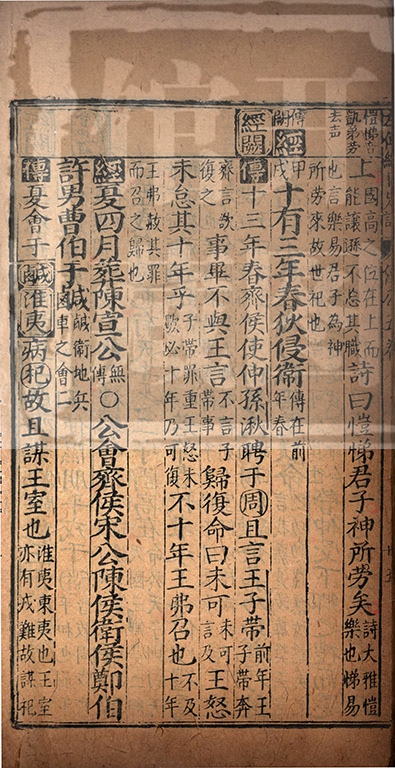 愷悌音凱弟勞去声上國高之位在上而能讓遜不怠其職詩曰愷悌君子神所勞矣詩大雅愷樂也悌易
也言樂易君子為神所勞來故世祀也
傳闕經甲戌十有三年春狄侵衛傳在前年春
經闕傳十三年春齊侯使仲孫湫聘于周且言王子帶前年王子帶奔
齊言欲復之事畢不與王言不言子帶事歸復命曰未可未可言及王怒
未怠其十年乎子帶罪重王怒未歇必十年乃可復不十年王弗召也不及十年
王弗赦其罪而召之歸也
經夏四月葬陳宣公無傳○公會齊侯宋公陳侯衛侯鄭伯
許男曹伯于鹹鹹衛地兵車之會二
傳夏會于鹹淮夷病杞故且謀王室也淮夷東夷也王室亦有戎難故謀杞